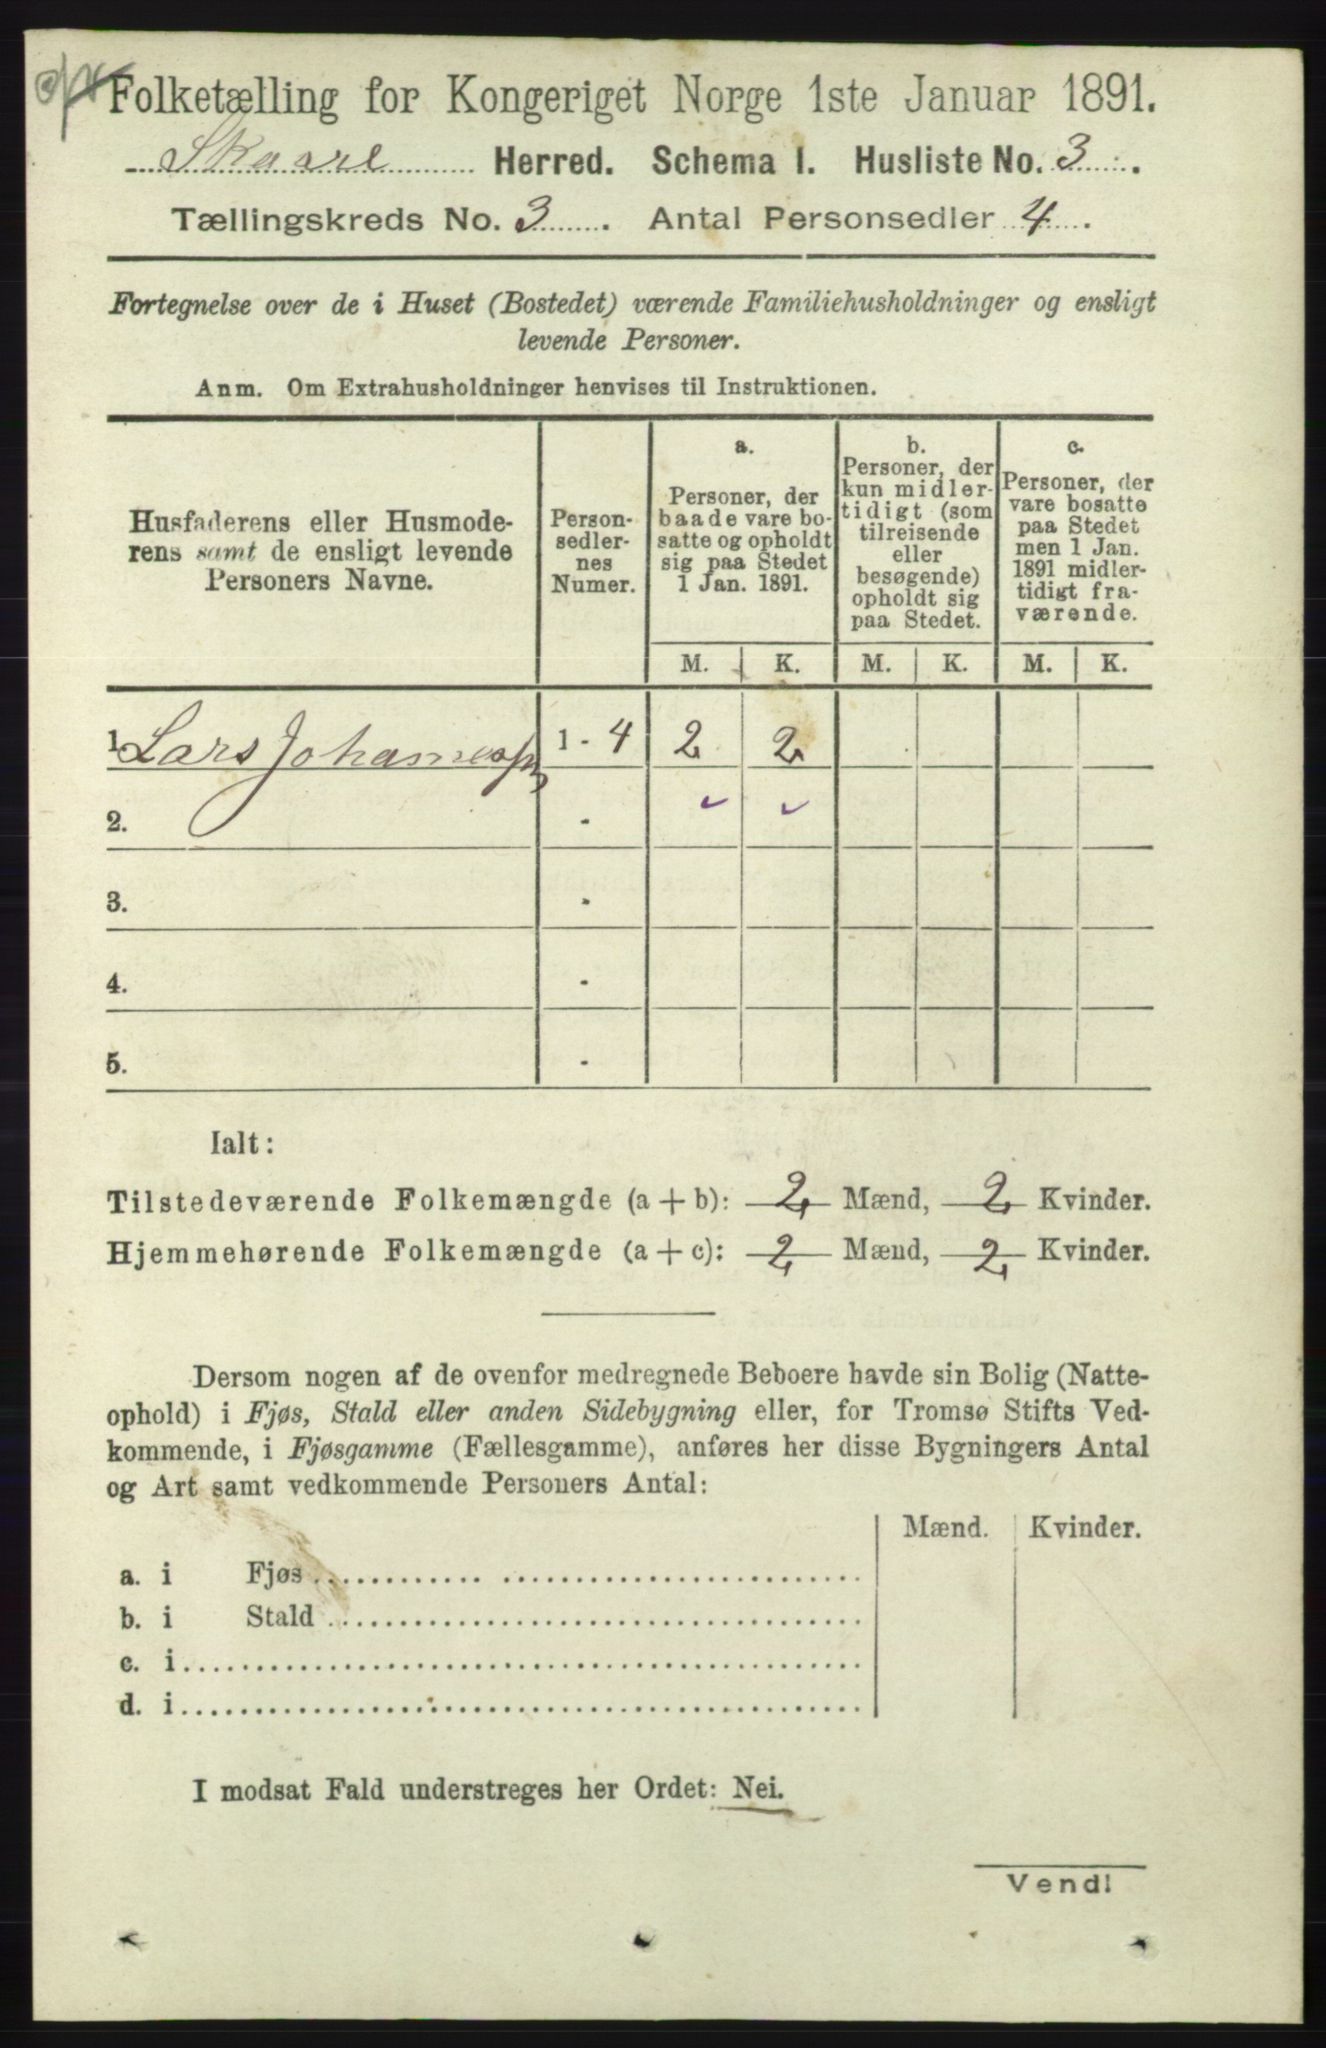 Folketælling for Kongeriget Norge 1ste Januar 1891.
Skaare Herred. Schema I. Husliste No. 3.
Tællingskreds No. 3. Antal Personsedler 4.
Fortegnelse over de i Huset (Bostedet) værende Familiehusholdninger og ensligt
levende Personer.
Anm. Om Extrahusholdninger henvises til Instruktionen.
Husfaderens eller Husmode-
rens samt de ensligt levende
Personers Navne.
Person-
sedler-
nes
Numer.
a.
Personer, der
baade vare bo-
satte og opholdt
sig paa Stedet
1 Jan. 1891.
b.
Personer, der
kun midler-
tidigt (som
tilreisende
eller
besøgende)
opholdt sig
paa Stedet.
c.
Personer, der
vare bosatte
paa Stedet
men 1 Jan.
1891 midler-
tidigt fra-
værende.
M. K. M. K. M. K.
1. Lars Johannessen 1 - 4 2 2
2. -
3. -
4. -
5. -
Ialt:
Tilstedeværende Folkemængde (a + b): 2 Mænd, 2 Kvinder.
Hjemmehørende Folkemængde (a + c): 2 Mænd, 2 Kvinder.
Dersom nogen af de ovenfor medregnede Beboere havde sin Bolig (Natte-
ophold) i Fjøs, Stald eller anden Sidebygning eller, for Tromsø Stifts Ved-
kommende, i Fjøsgamme (Fællesgamme), anføres her disse Bygningers Antal
og Art samt vedkommende Personers Antal:
Mænd. Kvinder.
a. i Fjøs
b. i Stald
c. i
d. i
I modsat Fald understreges her Ordet: Nei.
Vend!